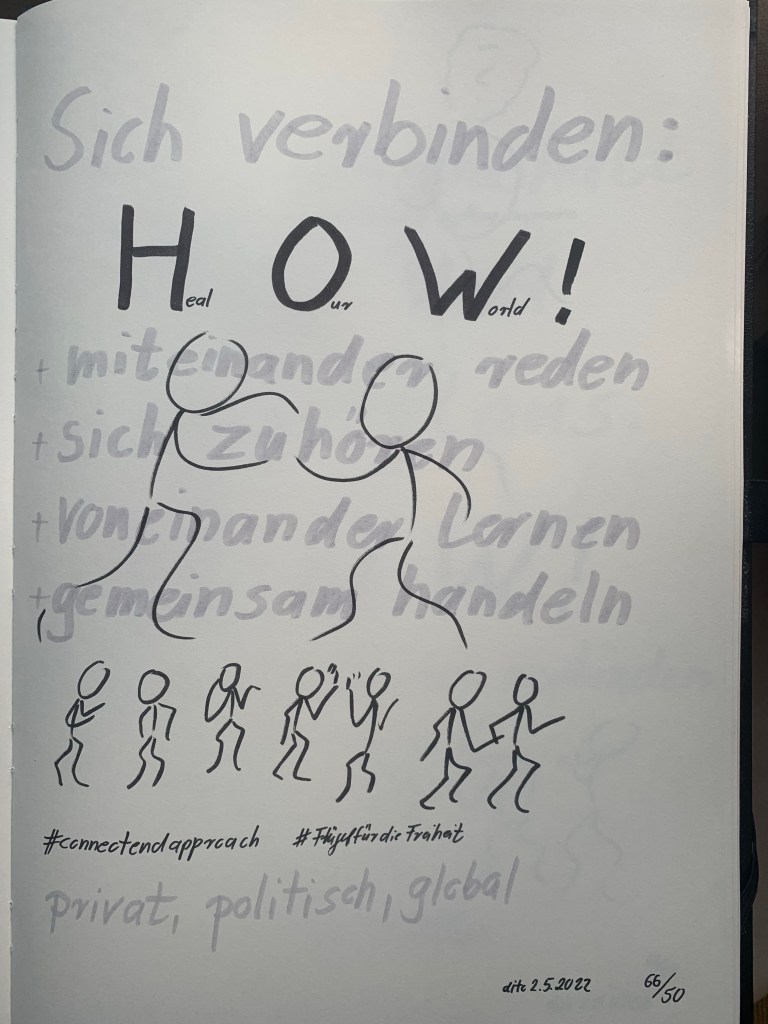 Sich verbinden:
Heal Our World!
+ miteinander reden
+ sich zuhören
+ voneinander lernen
+ gemeinsam handeln
#connectendapproach #FlügelfürdieFreiheit
privat, politisch, global
2.5.2022 66/50